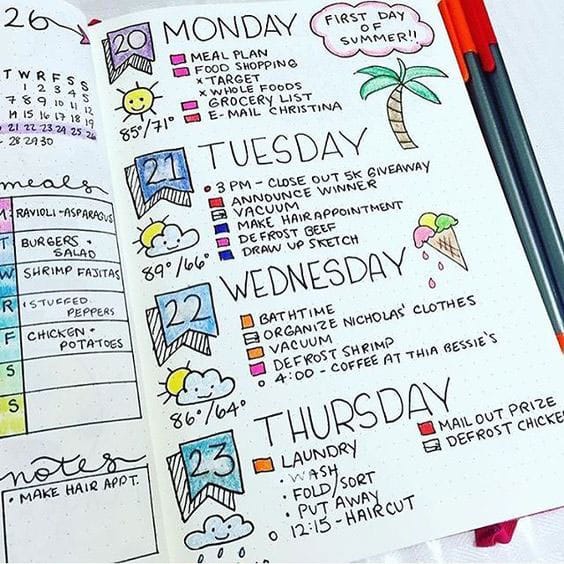 26
T W R F S S
1 2 3 4 5
7 8 9 10 11 12
14 15 16 17 18 19
21 22 23 24 25 26
28 29 30
meals
M: RAVIOLI-ASPARAGUS
T BURGERS +
SALAD
W SHRIMP FAJITAS
R STUFFED
PEPPERS
F CHICKEN +
POTATOES
S
S
notes
• MAKE HAIR APPT.
20 MONDAY
FIRST DAY
OF
SUMMER!!
MEAL PLAN
FOOD SHOPPING
× TARGET
× WHOLE FOODS
GROCERY LIST
E-MAIL CHRISTINA
85°/71°
21 TUESDAY
3 PM - CLOSE OUT 5K GIVEAWAY
ANNOUNCE WINNER
VACUUM
MAKE HAIR APPOINTMENT
DEFROST BEEF
DRAW UP SKETCH
89°/66°
22 WEDNESDAY
BATHTIME
ORGANIZE NICHOLAS' CLOTHES
VACUUM
DEFROST SHRIMP
4:00 - COFFEE AT THIA BESSIE'S
86°/64°
23 THURSDAY
LAUNDRY
• WASH
• FOLD/SORT
• PUT AWAY
12:15 - HAIRCUT
MAIL OUT PRIZE
DEFROST CHICKE